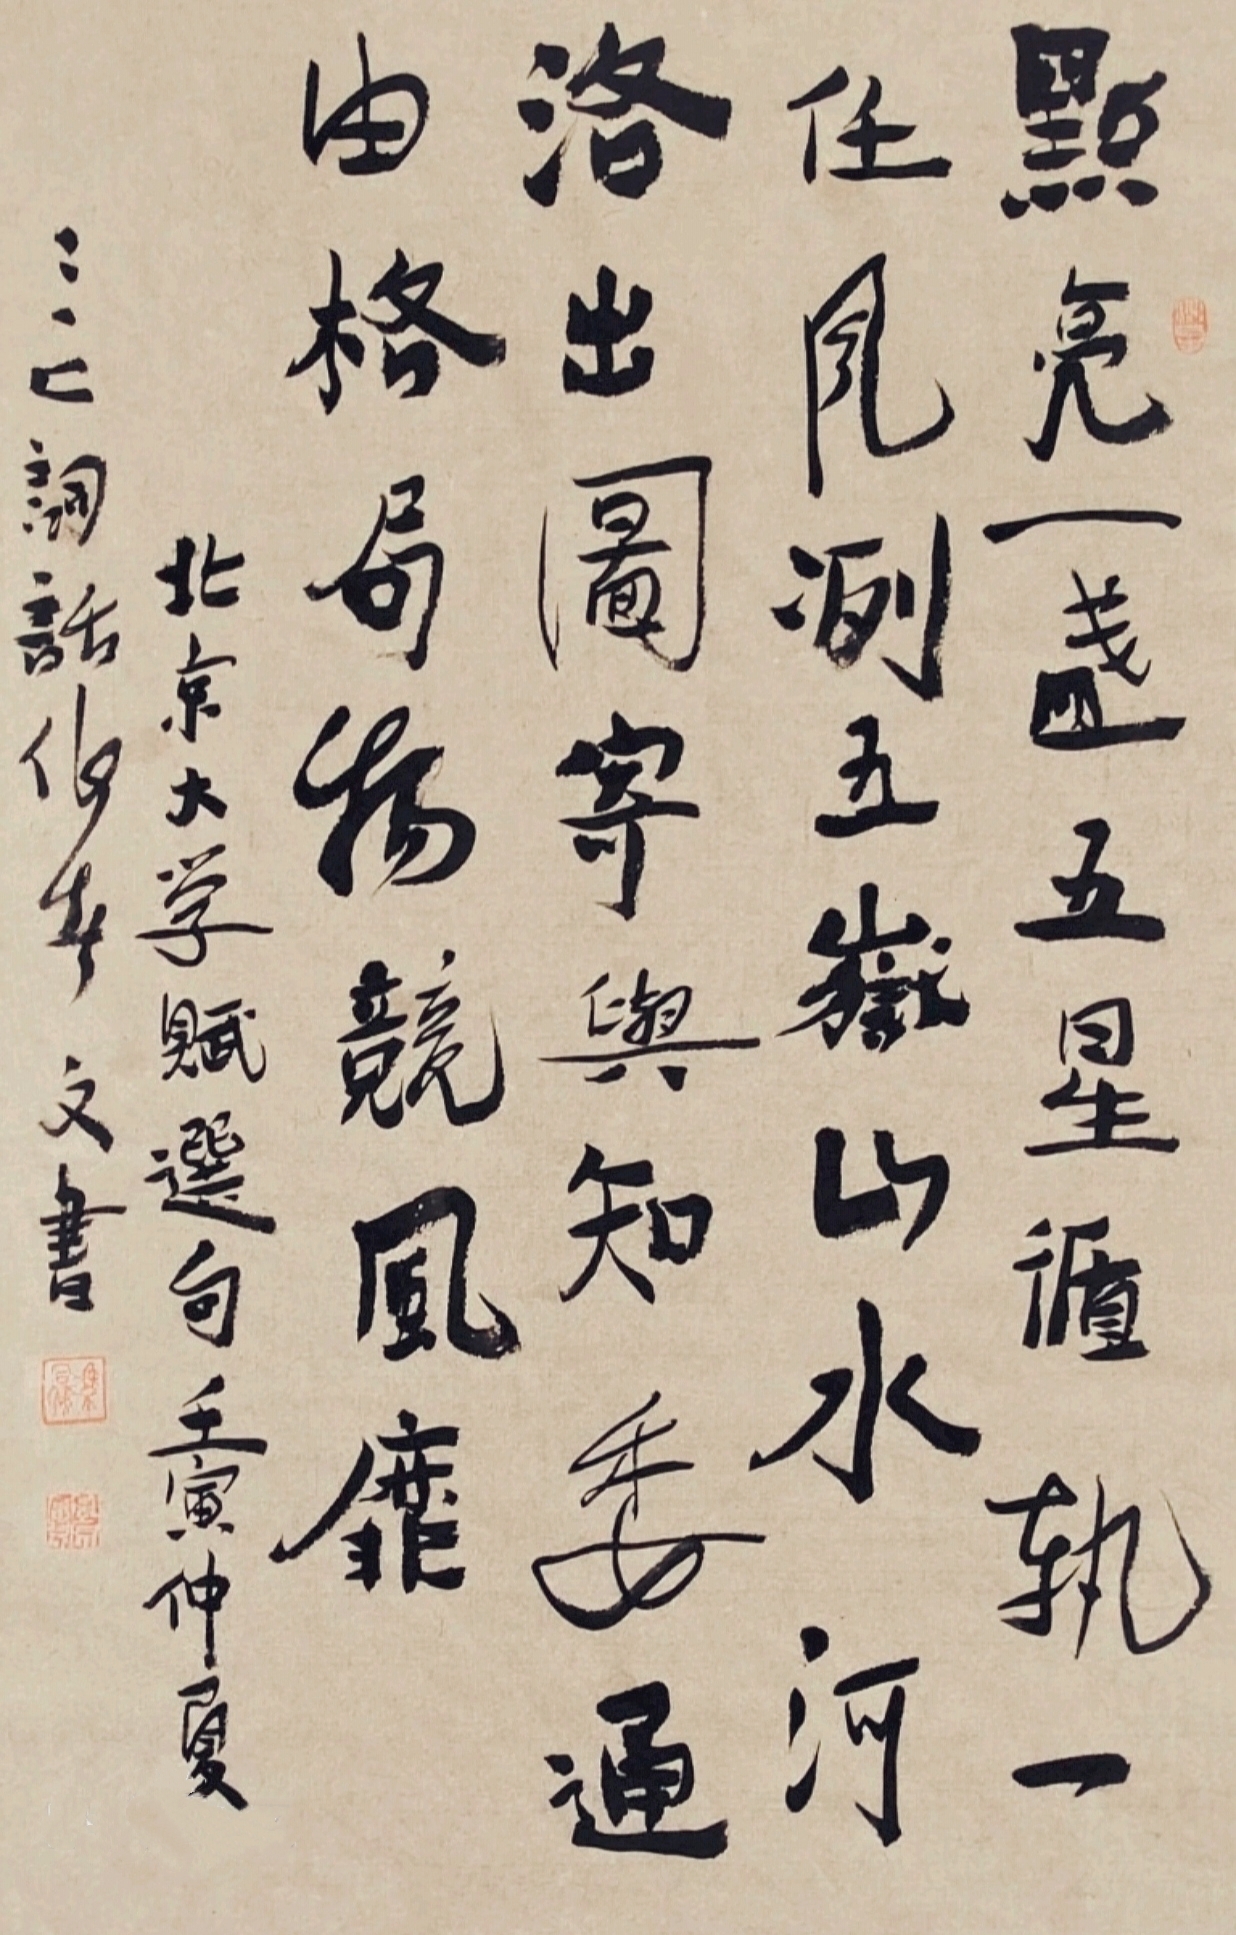 點亮一盞五星循執一
任風測五嶽山水河
洛出圖寄與知委通
由格局物競風靡
北京大学賦選句壬寅仲夏
詞話 文書